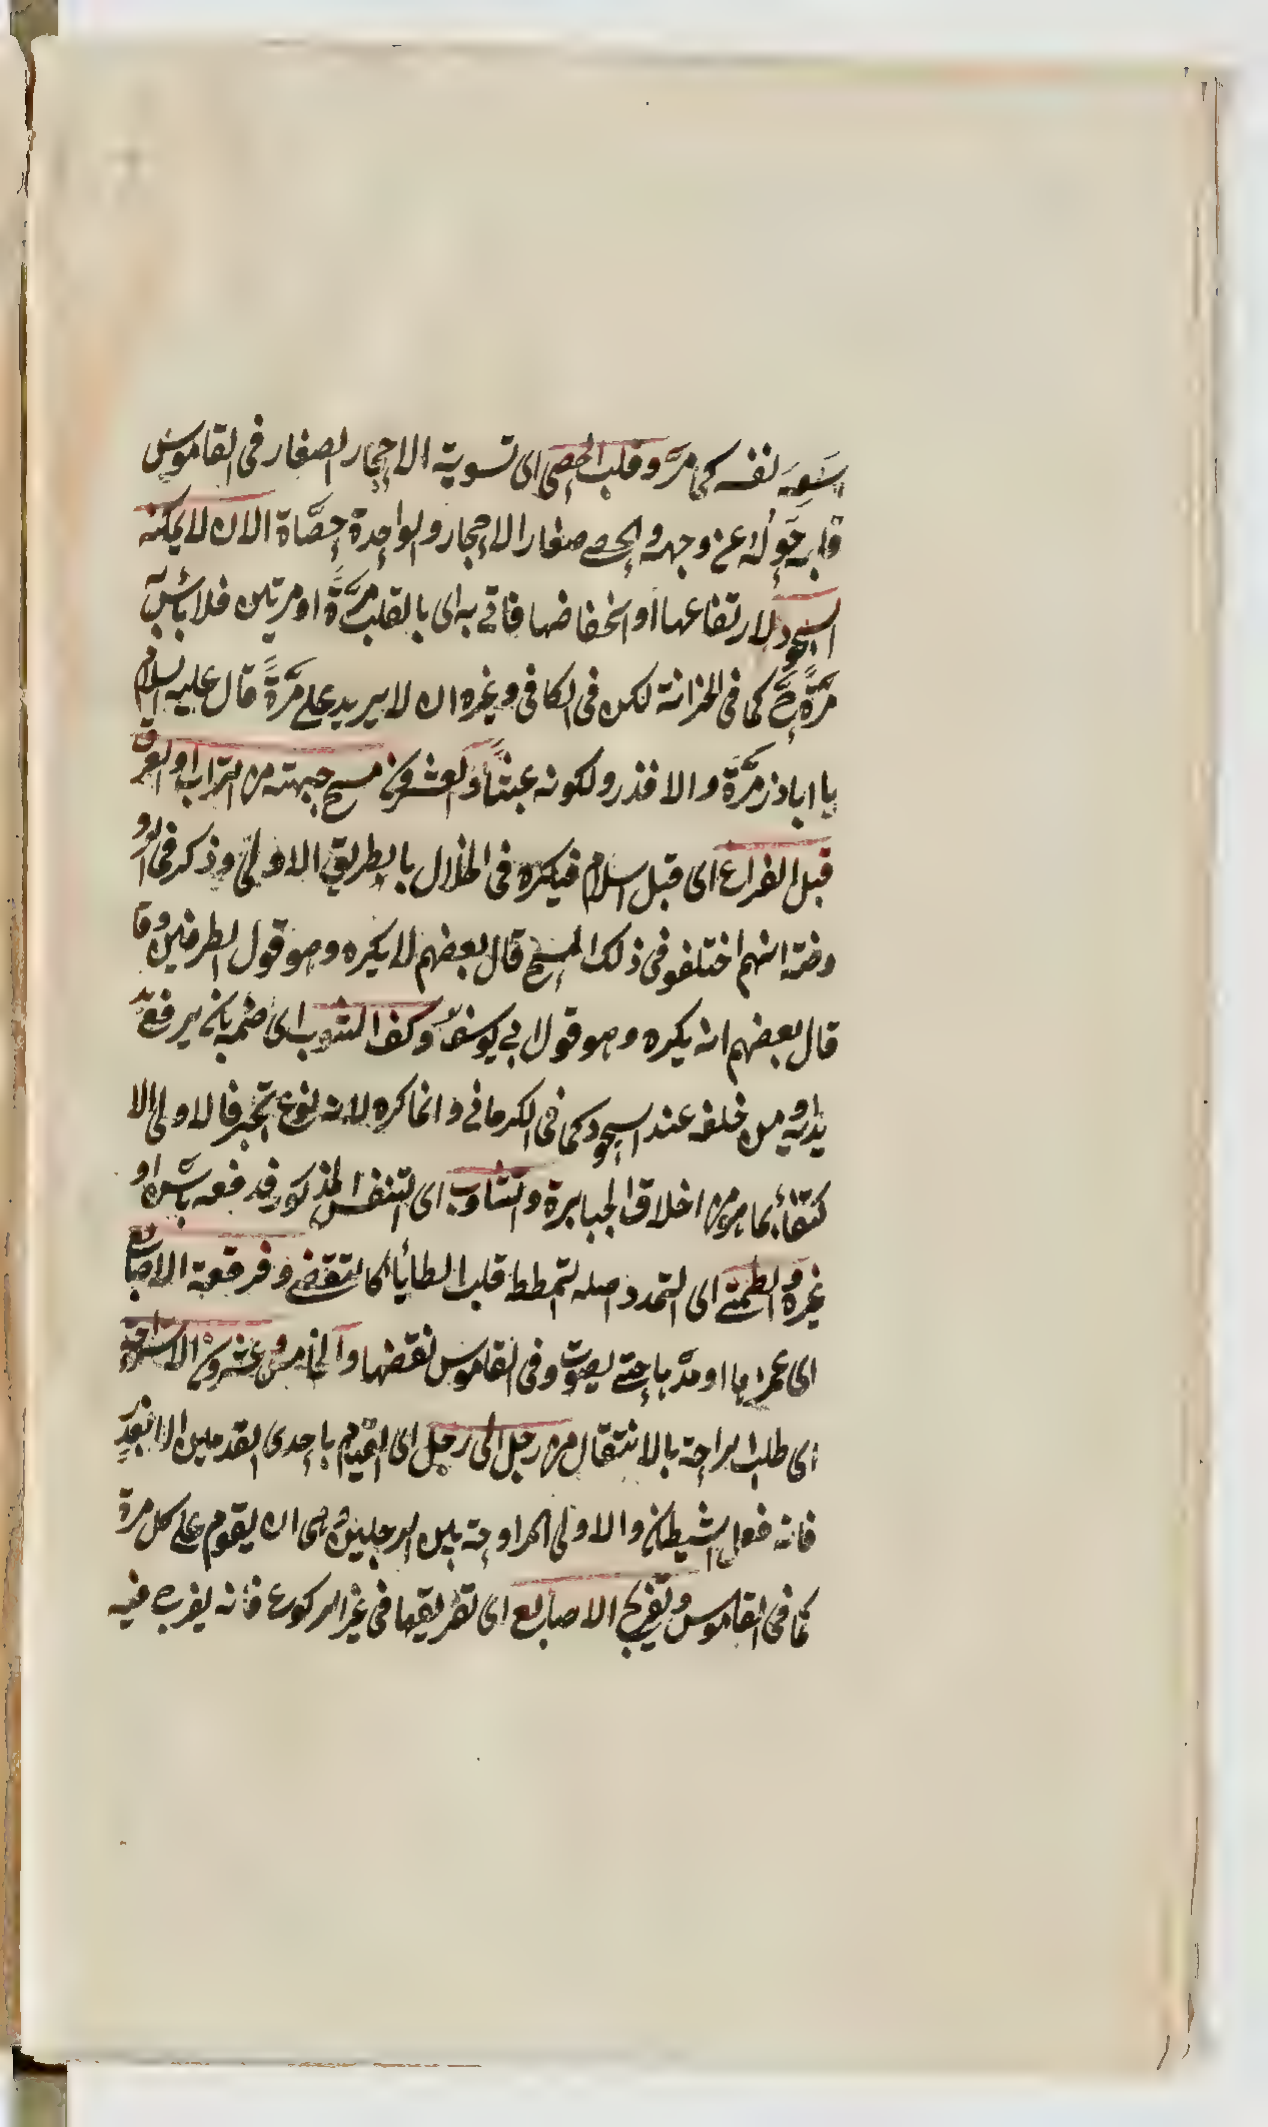 سعه نفسه كما مرّ وقلب الحصى اى تسوية الاحجار الصغار فى القاموس
قلبه حوله عن وجهه والحصى صغار الاحجار والواحدة حصاة الا ان لا يمكنه
السجود لارتفاعها او انخفاضها فاتى به اى بالقلب مرّةً او مرتين فلا بأس
مرّة كما فى الخزانة لكن فى الكافى وغيره ان لا يزيد على مرّةً قال عليه السلام
يا ابا ذر مرّة والا فذر ولكونه عبثا والعشرون مسح جبهته من التراب او العرق
قبل الفراغ اى قبل السلام فيكره فى الخلال بالطريق الاولى وذكر فى الرو
وضة انهم اختلفو فى ذلك المسح قال بعضهم لا يكره وهو قول الطرفين و قا
قال بعضهم انه يكره وهو قول ابى يوسف وكف الثوب اى ضمه بان يرفع
يديه من خلفه عند السجود كما فى الكرمانى وانما كره لانه نوع تجبر فالاولى الا
كتفاء بما هو من اخلاق الجبابرة والتثاوب اى التنفس المذكور فدفعه باسن او
غيره والطمتى اى التمدد اصله التمطط قلب الطا ياأ كالتقضى وفرقعة الاصابع
اى غمزها او مدّها حتى يصوت وفى القاموس نقضها والخامس وعشرون الاستراحة
اى طلب الراحة بالانتقال من رجل الى رجل اى القيام باحدى القدمين الا بعذر
فانه فعل الشيطان والاولى المراوحة بين الرجلين وهى ان يقوم على كل مرة
كما فى القاموس وتفريج الاصابع اى تفريقها فى غير الركوع فانه يفرج فيه